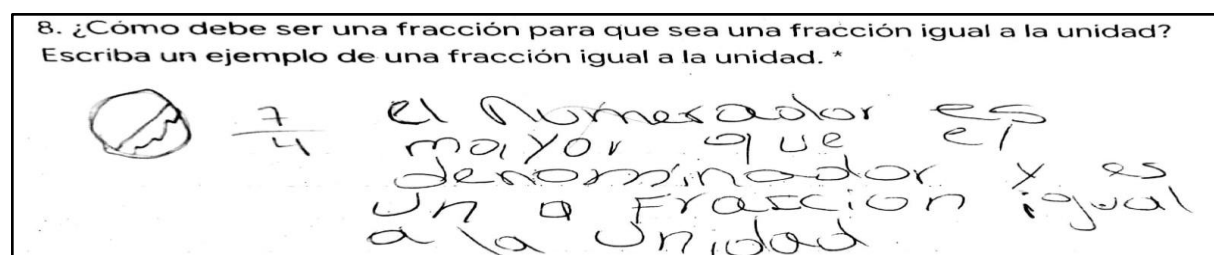 8. ¿Cómo debe ser una fracción para que sea una fracción igual a la unidad?
Escriba un ejemplo de una fracción igual a la unidad. *
7/4 el Numerador es
mayor que el
denominador y es
un a Frascion igual
a la Unidad